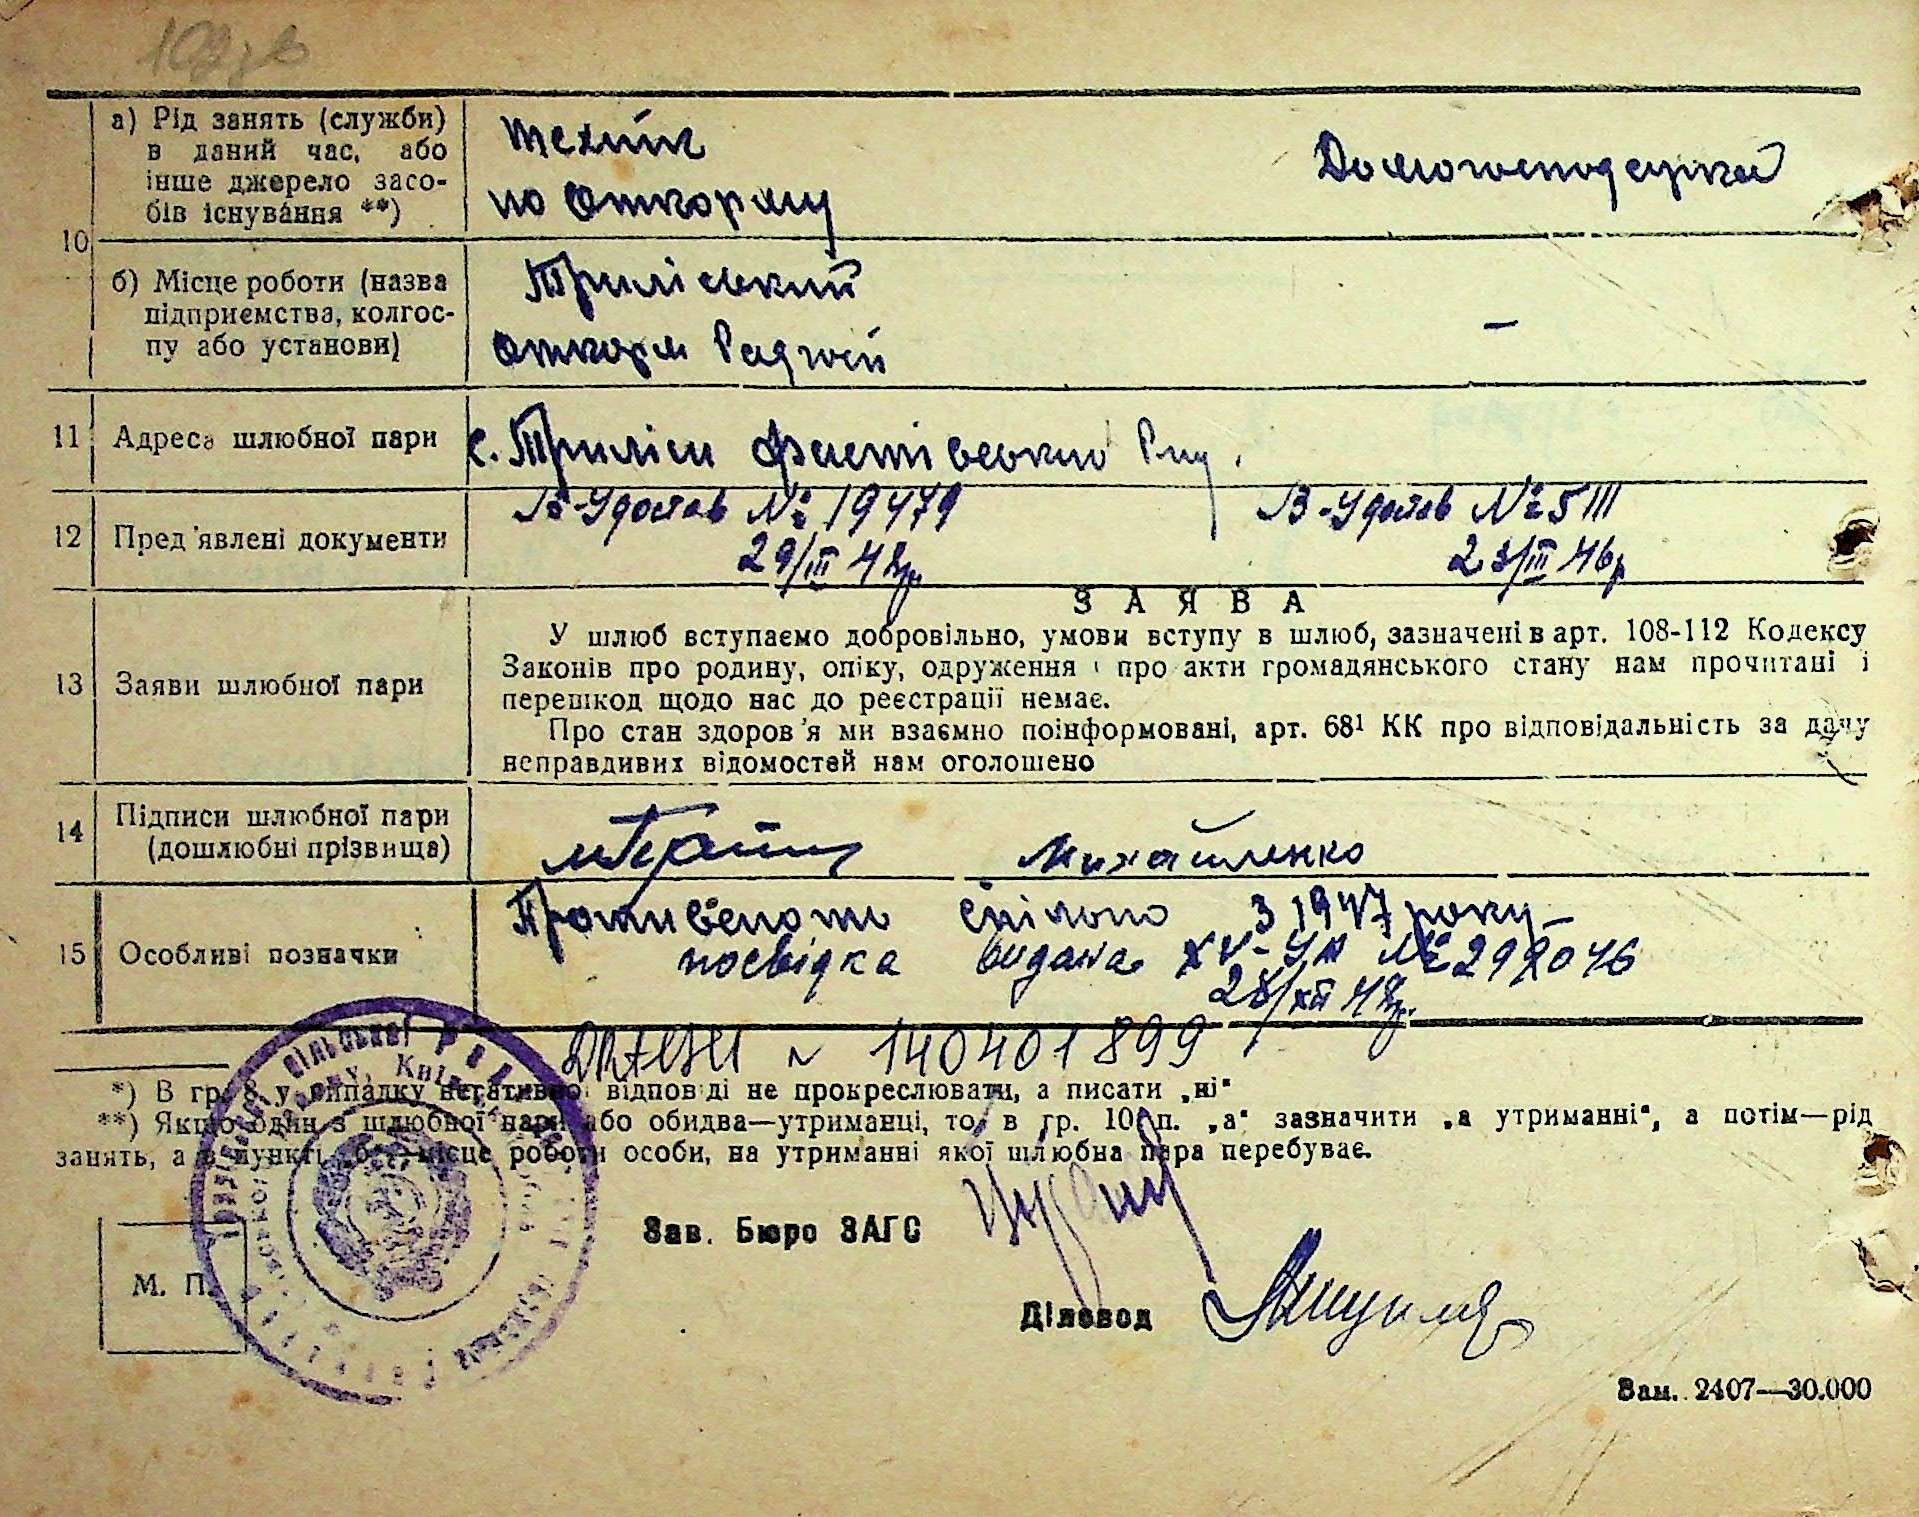 а) Рід занять (служби)
в даний час, або
інше джерело засо-
бів існування **)
Технік
по Откорму
Домогосподарка
10
б) Місце роботи (назва
підприємства, колгос-
пу або установи)
Триліський
Откорм Радгосп
—
11 Адреса шлюбної пари
с. Триліси Фастівський
12 Пред'явлені документи
В-Удостов № 19479
29/III 48р.
В-Удостов № 5111
23/III 46р
13 Заяви шлюбної пари
ЗАЯВА
У шлюб вступаємо добровільно, умови вступу в шлюб, зазначені в арт. 108-112 Кодексу
Законів про родину, опіку, одруження і про акти громадянського стану нам прочитані і
перешкод щодо нас до реєстрації немає.
Про стан здоров'я ми взаємно поінформовані, арт. 68¹ КК про відповідальність за дачу
неправдивих відомостей нам оголошено
14 Підписи шлюбної пари
(дошлюбні прізвища)
Михайленко
15 Особливі позначки
спільно з 1947 року
посвідка видана XV-УЛ № 292046
28/XII 48р.
ДРАЦСГ № 140401899
*) В гр. 8 у випадку негативної відповіді не прокреслювати, а писати „ні“
**) Якщо один з шлюбної пари або обидва—утриманці, то в гр. 10 п. „а“ зазначити „а утриманні“, а потім—рід
занять, а в пункті „б“—місце роботи особи, на утриманні якої шлюбна пара перебуває.
Зав. Бюро ЗАГС
М. П.
Діловод
Зам. 2407—30.000